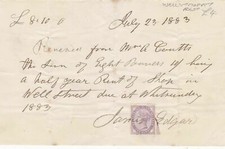 £8.10.0 July 23 1883
Received from Mr A Coutts
the Sum of Eight Pounds 10/ being
a half year Rent of Shop in
Well Street due at Whitsunday
1883
James Edgar